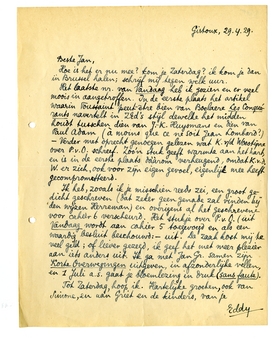 Gistoux, 29.4.29.
Beste Jan,
Hoe is het er nu mee? Kom je Zaterdag? ik kom je dan
in Brussel halen; schrijf mij tegen welk uur.
Het laatste nr. van Vandaag heb ik gezien en er veel
moois in aangetroffen. In de eerste plaats het artikel
waarin Toussaint
navertelt in stijl dewelke het midden
houdt tusschen dien van J.-K. Huysmans en dien van
Paul Adam (à moins que ce ne soit Jean Lombard?)
Verder met oprecht genoegen gelezen wat K. v/d Woestijne
over P.v.O. schreef. Zijn stuk geeft veel warmte aan het hart
en is in de eerste plaats daarom verheugend, omdat K.v.d.
W. er zich, ook voor zijn eigen gevoel, eigenlijk mee heeft
gecompromitteerd.
Ik het, zoals ik je misschien reeds zei, een groot ge-
dicht geschreven (dat zeker geen genade zal vinden bij
een Herreman) en overigens al het geschrevene
voor cahier 6 verscheurd. Het stukje over P.v.O. (uit
Vandaag) wordt aan cahier 5 toegevoegd en als een
waardig besluit beschouwd: - uit! De zaak kost mij te
veel geld; of liever gezegd, ik geef het met meer plezier
aan iets anders uit. Ik ga met Jan Gr. samen zijn
Korte Overwegingen uitgeven, in afzonderlijke vellen,
en 1 Juli a.s. gaan de bloemlezing in druk (sans faute).
Tot Zaterdag, hoop ik. Hartelijke groeten, ook van
Simone, en aan Griet en de kinders, van je
Eddy